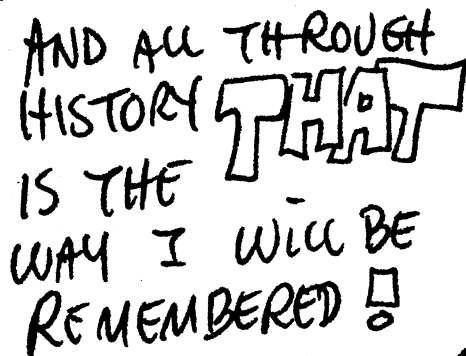 AND ALL THROUGH
HISTORY THAT
IS THE
WAY I WILL BE
REMEMBERED!